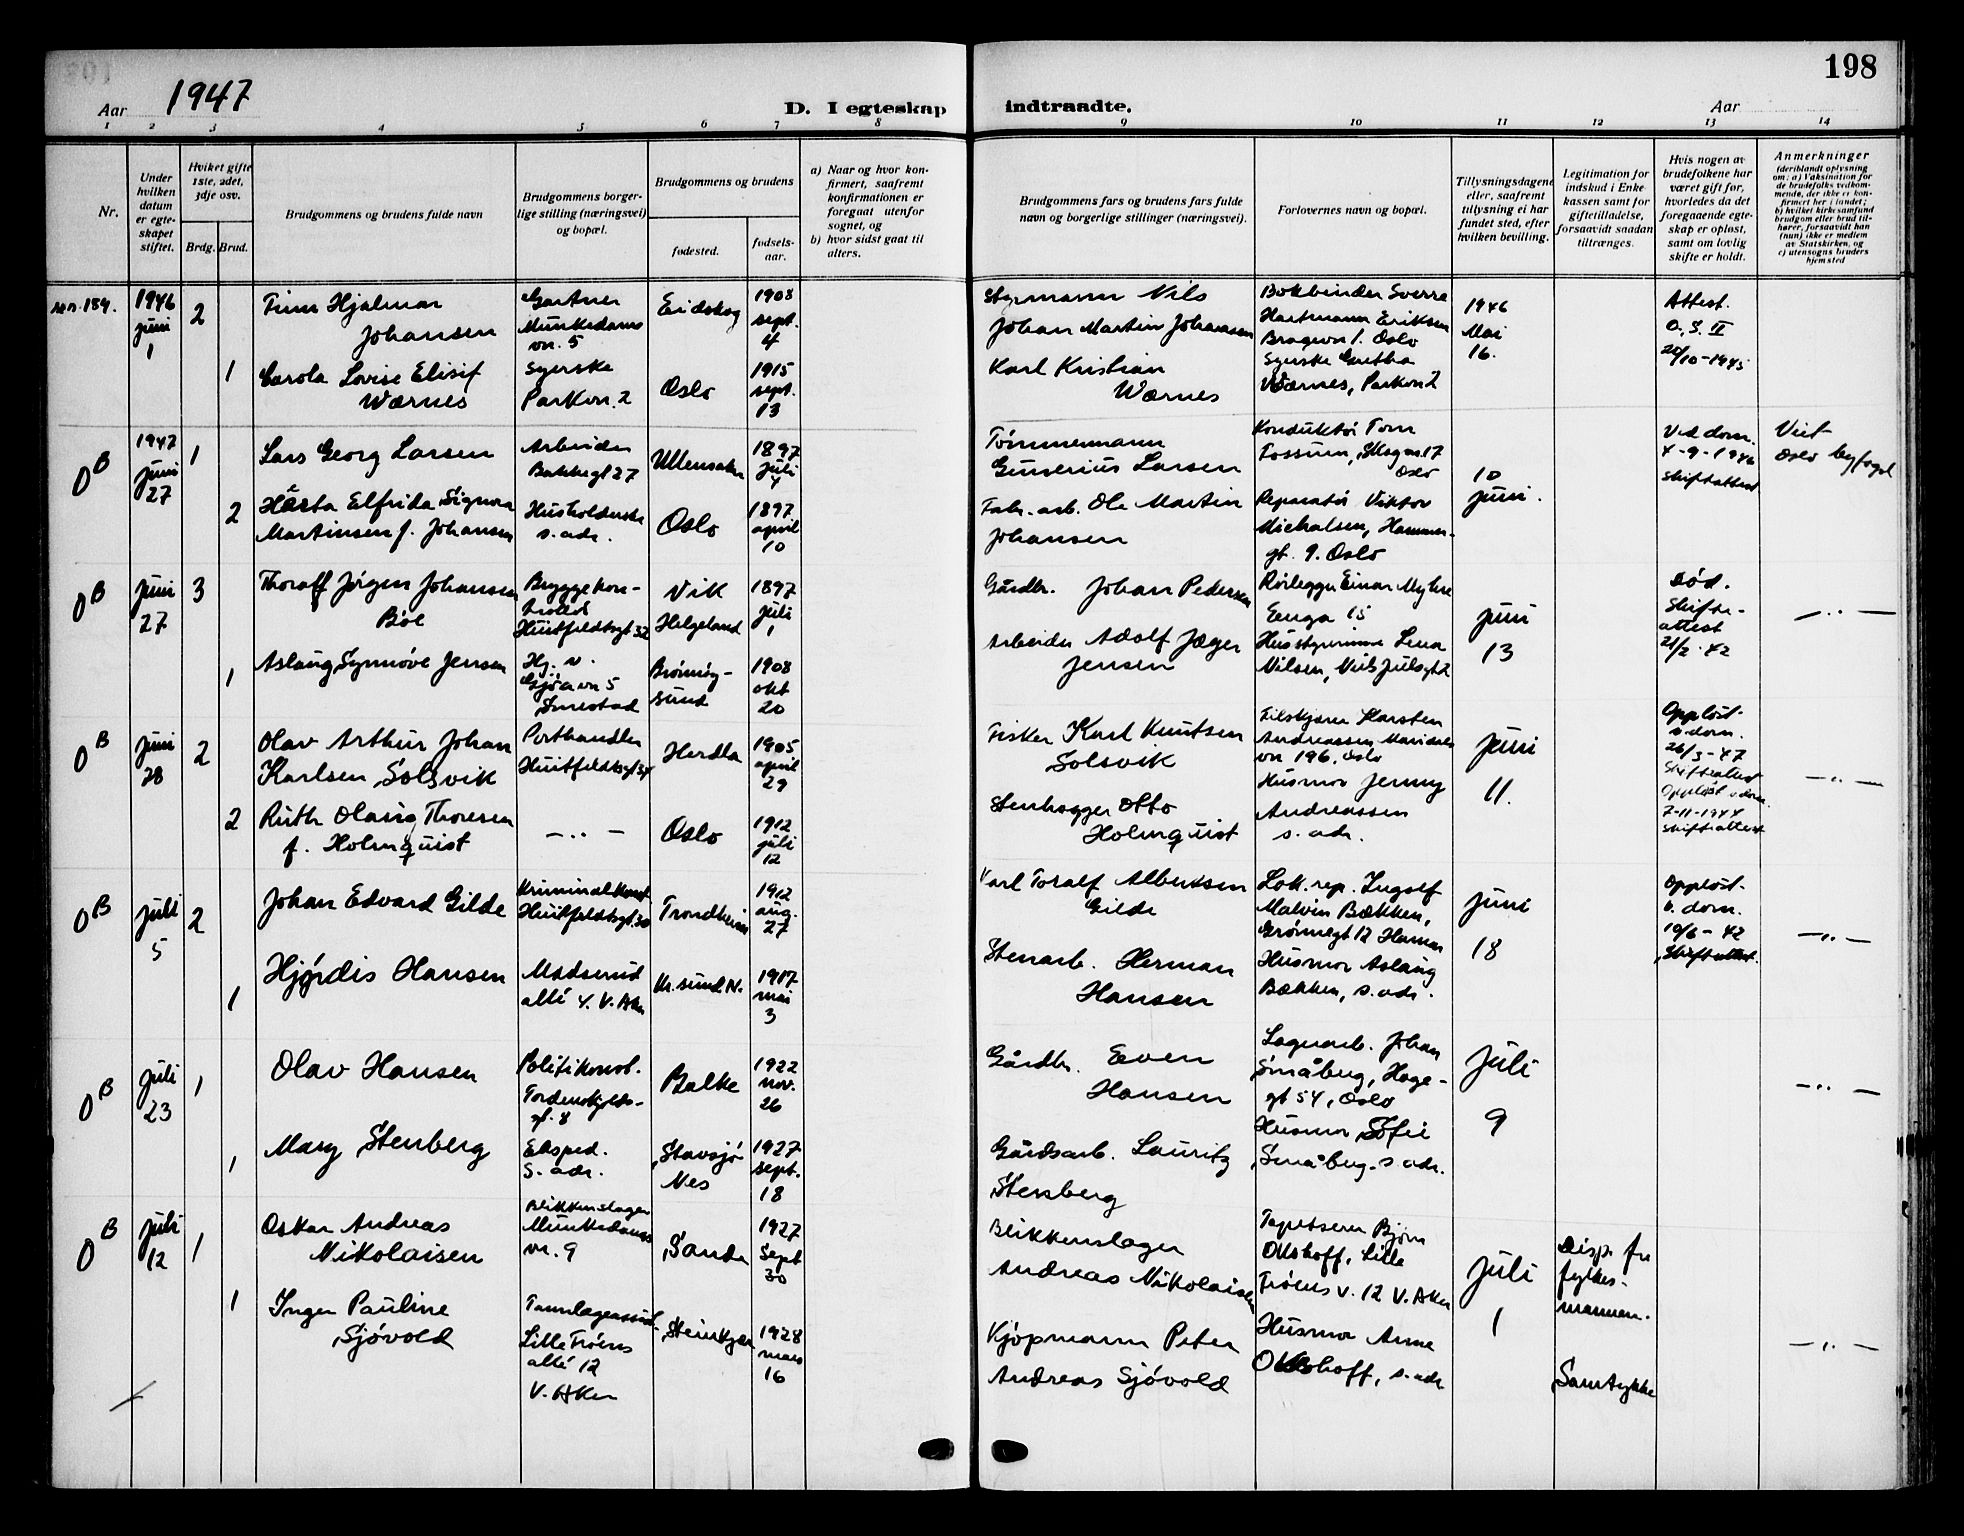 198
Aar 1947
D. I egteskap indtraadte.
Aar
1 2 3 4 5 6 7 8 9 10 11 12 13 14
Nr.
Under hvilken datum er egteskapet stiftet.
Hviket gifte 1ste, 2det, 3dje osv.
Brdg. Brud.
Brudgommens og brudens fulde navn
Brudgommens borgerlige stilling (næringsvei) og bopæl.
Brudgommens og brudens
fødested.
fødselsaar.
a) Naar og hvor konfirmert, saafremt konfirmationen er foregaat utenfor sognet, og
b) hvor sidst gaat til alters.
Brudgommens fars og brudens fars fulde navn og borgerlige stillinger (næringsvei).
Forlovernes navn og bopæl.
Tillysningsdagene eller, saafremt tillysning ei har fundet sted, efter hvilken bevilling.
Legitimation for indskud i Enkekassen samt for giftetilladelse, forsaavidt saadan tiltrænges.
Hvis nogen av brudefolkene har været gift før, hvorledes da det foregaaende egteskap er opløst, samt om lovlig skifte er holdt.
Anmerkninger
(deriblandt oplysning om: a) Vaksination for de brudefolks vedkommende, der ikke er konfirmert her i landet;
b) hvilket kirkesamfund brudgom eller brud tilhører, forsaavidt han (hun) ikke er medlem av Statskirken, og
c) utensogns bruders hjemsted
1946 juni 1
2
Finn Hjalmar
Johansen
Gartner
Munkedams
vn. 5
Eidskog
1908
sept.
4
Styrmann Nils
Johan Martin Johansen
Bokbinder Sverre
Hartmann Eriksen
Bragevn 1. Oslo
1946
Mai
16.
Attest.
O.S. II
20/10-1945
1
Carola Lovise Elisif
Wærnes
Syerske
Parkvn. 2
Oslo
1915
sept.
13
Karl Kristian
Wærnes
Syerske Gretha
Wærnes, Parkvn 2
OB
1947
juni
27
1
Lars Georg Larsen
Arbeider
Bakkegt 27
Ullensaker
1897
juli
4
Tømmermann
Gunerius Larsen
Konduktør Tom
Fossum,
Oslo
10
juni.
Ved dom.
4-9-1946
Skifteattest
Viet
Oslo byfogd
2
Hærta Elfrida Signora
Martinsen f. Johansen
Husholderske
s. adr.
Oslo
1897
april
10
Fabr. arb. Ole Martin
Johansen
Reparatør Viktor
Michalsen, Hammer-
gt. 9. Oslo
OB
juni
27
3
Thoralf Jørgen Johansen
Bøe
Bryggekon-
trollør
Huitfeldtsgt 32
Vik
Helgeland
1897
juli
1
Gårdbr. Johan Pedersen
Rørlegger Einar Myhre
Enga 15
juni
13
Død.
Skifte-
attest
21/2-42
— .. —
1
Aslaug Synnøve Jensen
Hj. v.
vn 5
Smestad
Brønnøy-
sund
1908
okt
20
Arbeider Adolf Jæger
Jensen
Husstyrerinne Lena
Nilsen, Niels Juelsgt 2
OB
juni
28
2
Olav Arthur Johan
Karlsen Solsvik
Porthandler
Huitfeldtsgt 34
Herdla
1905
april
29
Fisker Karl Knutsen
Solsvik
Filskjærer Karsten
Andreassen Maridals
vn 196, Oslo
juni
11.
Oppløst.
v. dom.
26/3-47
Skifteattest
Oppløst v dom.
7-11-1944
Skifteattest
— .. —
2
Ruth Olaug Thoresen
f. Holmquist
— .. —
Oslo
1912
juli
12
Stenhogger Otto
Holmquist
Husmor Jenny
Andreassen
s. adr.
OB
juli
5
2
Johan Edvard Gilde
Kriminalkonst
Huitfeldtsgt. 30
Trondheim
1912
aug.
27
Karl Toralf Albertsen
Gilde
Lok. rep. Ingolf
Malvin Bækken,
Grønnegt 12 Hamar
juni
18
Oppløst.
v. dom.
10/6-42
Skifteattest.
— .. —
1
Hjørdis Hansen
Madserud
allé 4. V. Aker
Kr. sund N.
1917
mai
3
Stenarb. Herman
Hansen
Husmor Aslaug
Bækken, s. adr.
OB
juli
23
1
Olav Hansen
Politikonst.
Tordenskjolds-
gt. 8
Balke
1922
nov.
26
Gårdbr. Even
Hansen
Lagerarb. Johan
Småberg, Hage-
gt 54, Oslo
juli
9
— .. —
1
Mary Stenberg
Eksped.
s. adr.
Stavsjø
Nes
1927
sept.
18
Gårdsarb. Lauritz
Stenberg
Husmor Sofie
Småberg. s. adr.
OB
juli
12
1
Oskar Andreas
Nikolaisen
Blikkenslager
Munkedams
vn. 9
Sande
1927
Sept
30
Blikkenslager
Andreas Nikolaisen
Tapetserer Bjørn
Olshoff, Lille
Frøens v. 12 V. Aker
juli
1
Disp. fra
fylkes-
mannen.
1
Inger Pauline
Sjøvold
Tannlegeassist.
Lille Frøens
allé 12
V. Aker
Steinkjer
1928
mars
16
Kjøpmann Peter
Andreas Sjøvold
Husmor Anne
Olshoff, s. adr
Samtykke
— .. —